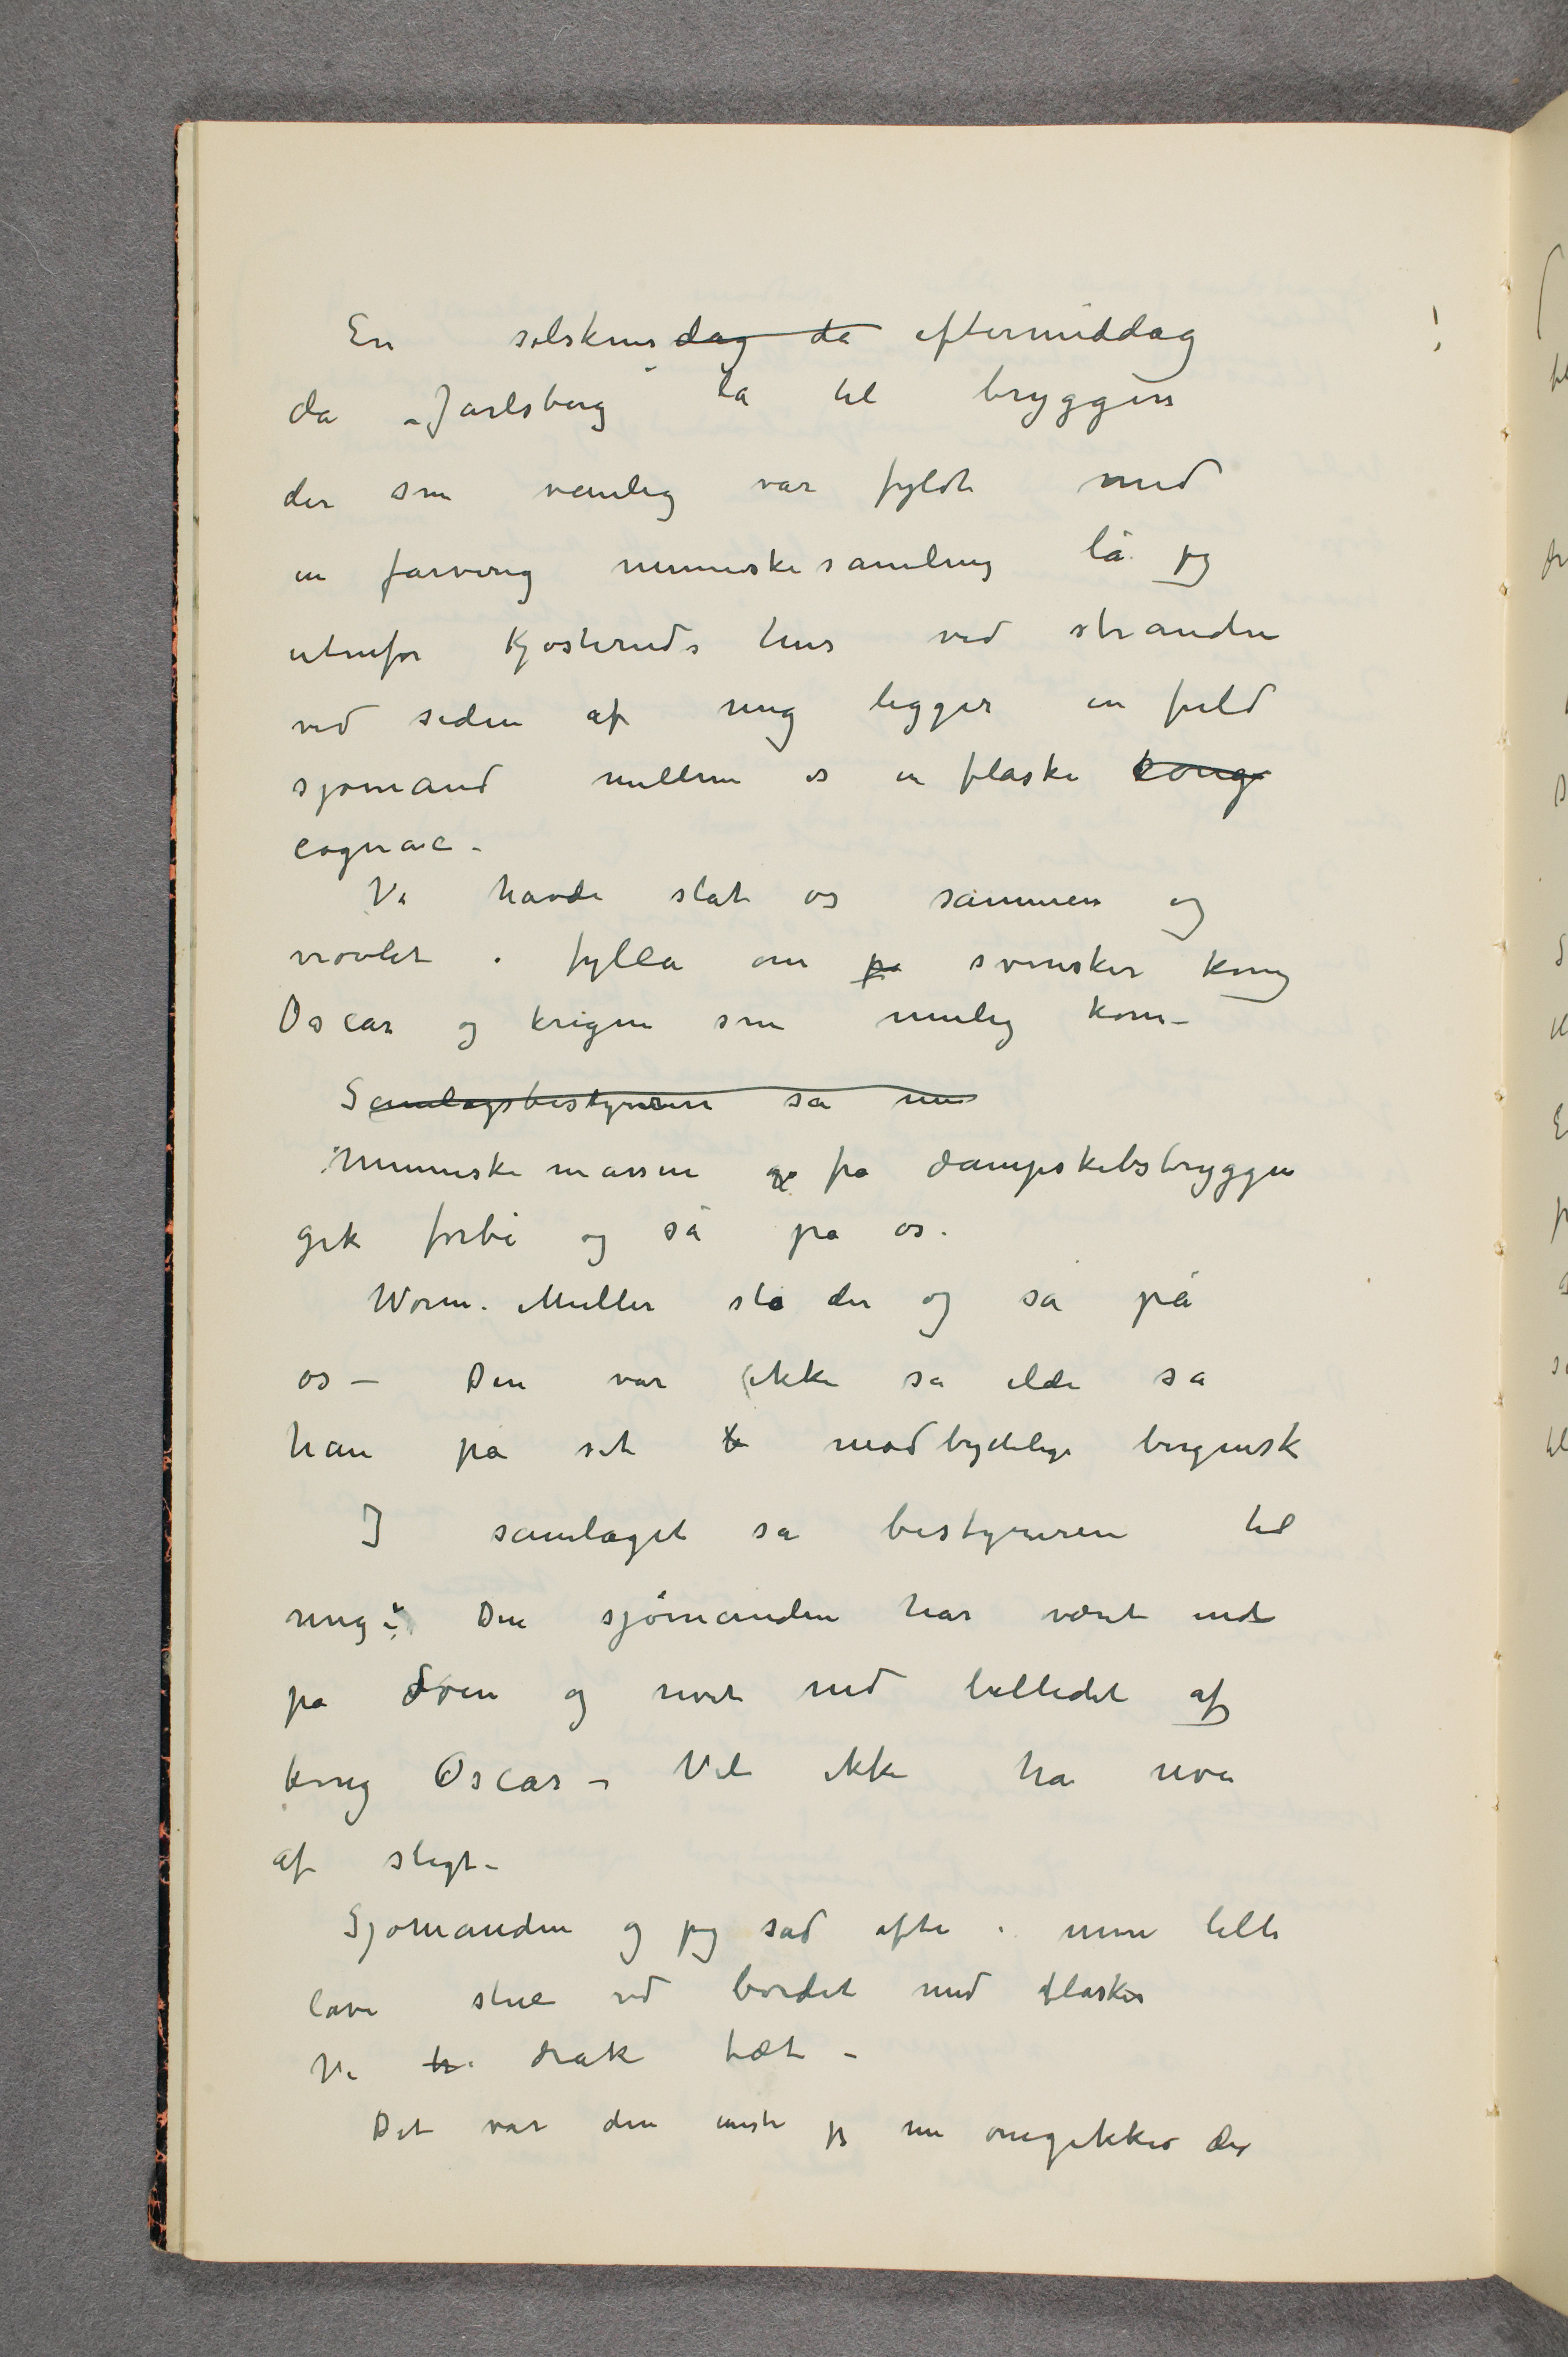 En solskinsdag da eftermiddag
da „Jarlsberg“ la til bryggen
der som vanlig var fyldt med
en farverig menneskesamling lå jeg
utenfor Kjøsteruds hus ved stranden
ved siden af mig ligger en fuld
sjømand mellem os en flaske kong
cognac –
Vi havde slåt os sammen og
vrøvlet i fylla om på svensker kong
Oscar og krigen som mulig kom –
Samlagsbestyreren sa mu
Menneskemassen g fra dampskibsbryggen
gik forbi og så på os.
Worm-Muller sto der og så på
os – Den var ikke så ilde sa
han på sit modbydelige bergensk
I samlaget sa bestyreren til
mig: Den sjømanden har været inde
på døren og revet ned billedet af
kong Oscar – Vil ikke ha noe
af sligt –
Sjømanden og jeg sad ofte i min lille
lave stue ved bordet med flasker
Vi tr drak tæt –
Det var den eneste jeg nu omgikkes der
!